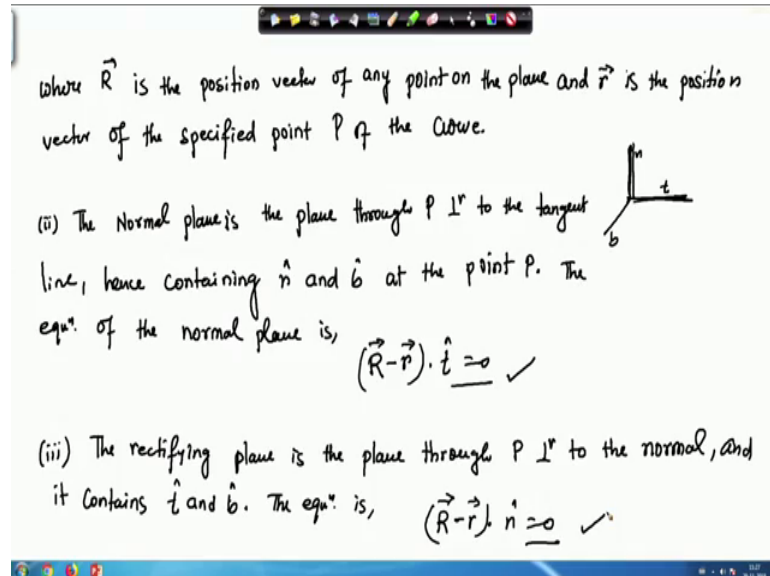 where R⃗ is the position vector of any point on the plane and r⃗ is the position
vector of the specified point P of the curve.
n
t
b
(ii) The Normal plane is the plane through P ⊥ʳ to the tangent
line, hence containing n̂ and b̂ at the point P. The
equⁿ. of the normal plane is,
(R⃗ - r⃗). t̂ = 0 ✓
(iii) The rectifying plane is the plane through P ⊥ʳ to the normal, and
it contains t̂ and b̂. The equⁿ. is,
(R⃗ - r⃗). n̂ = 0 ✓